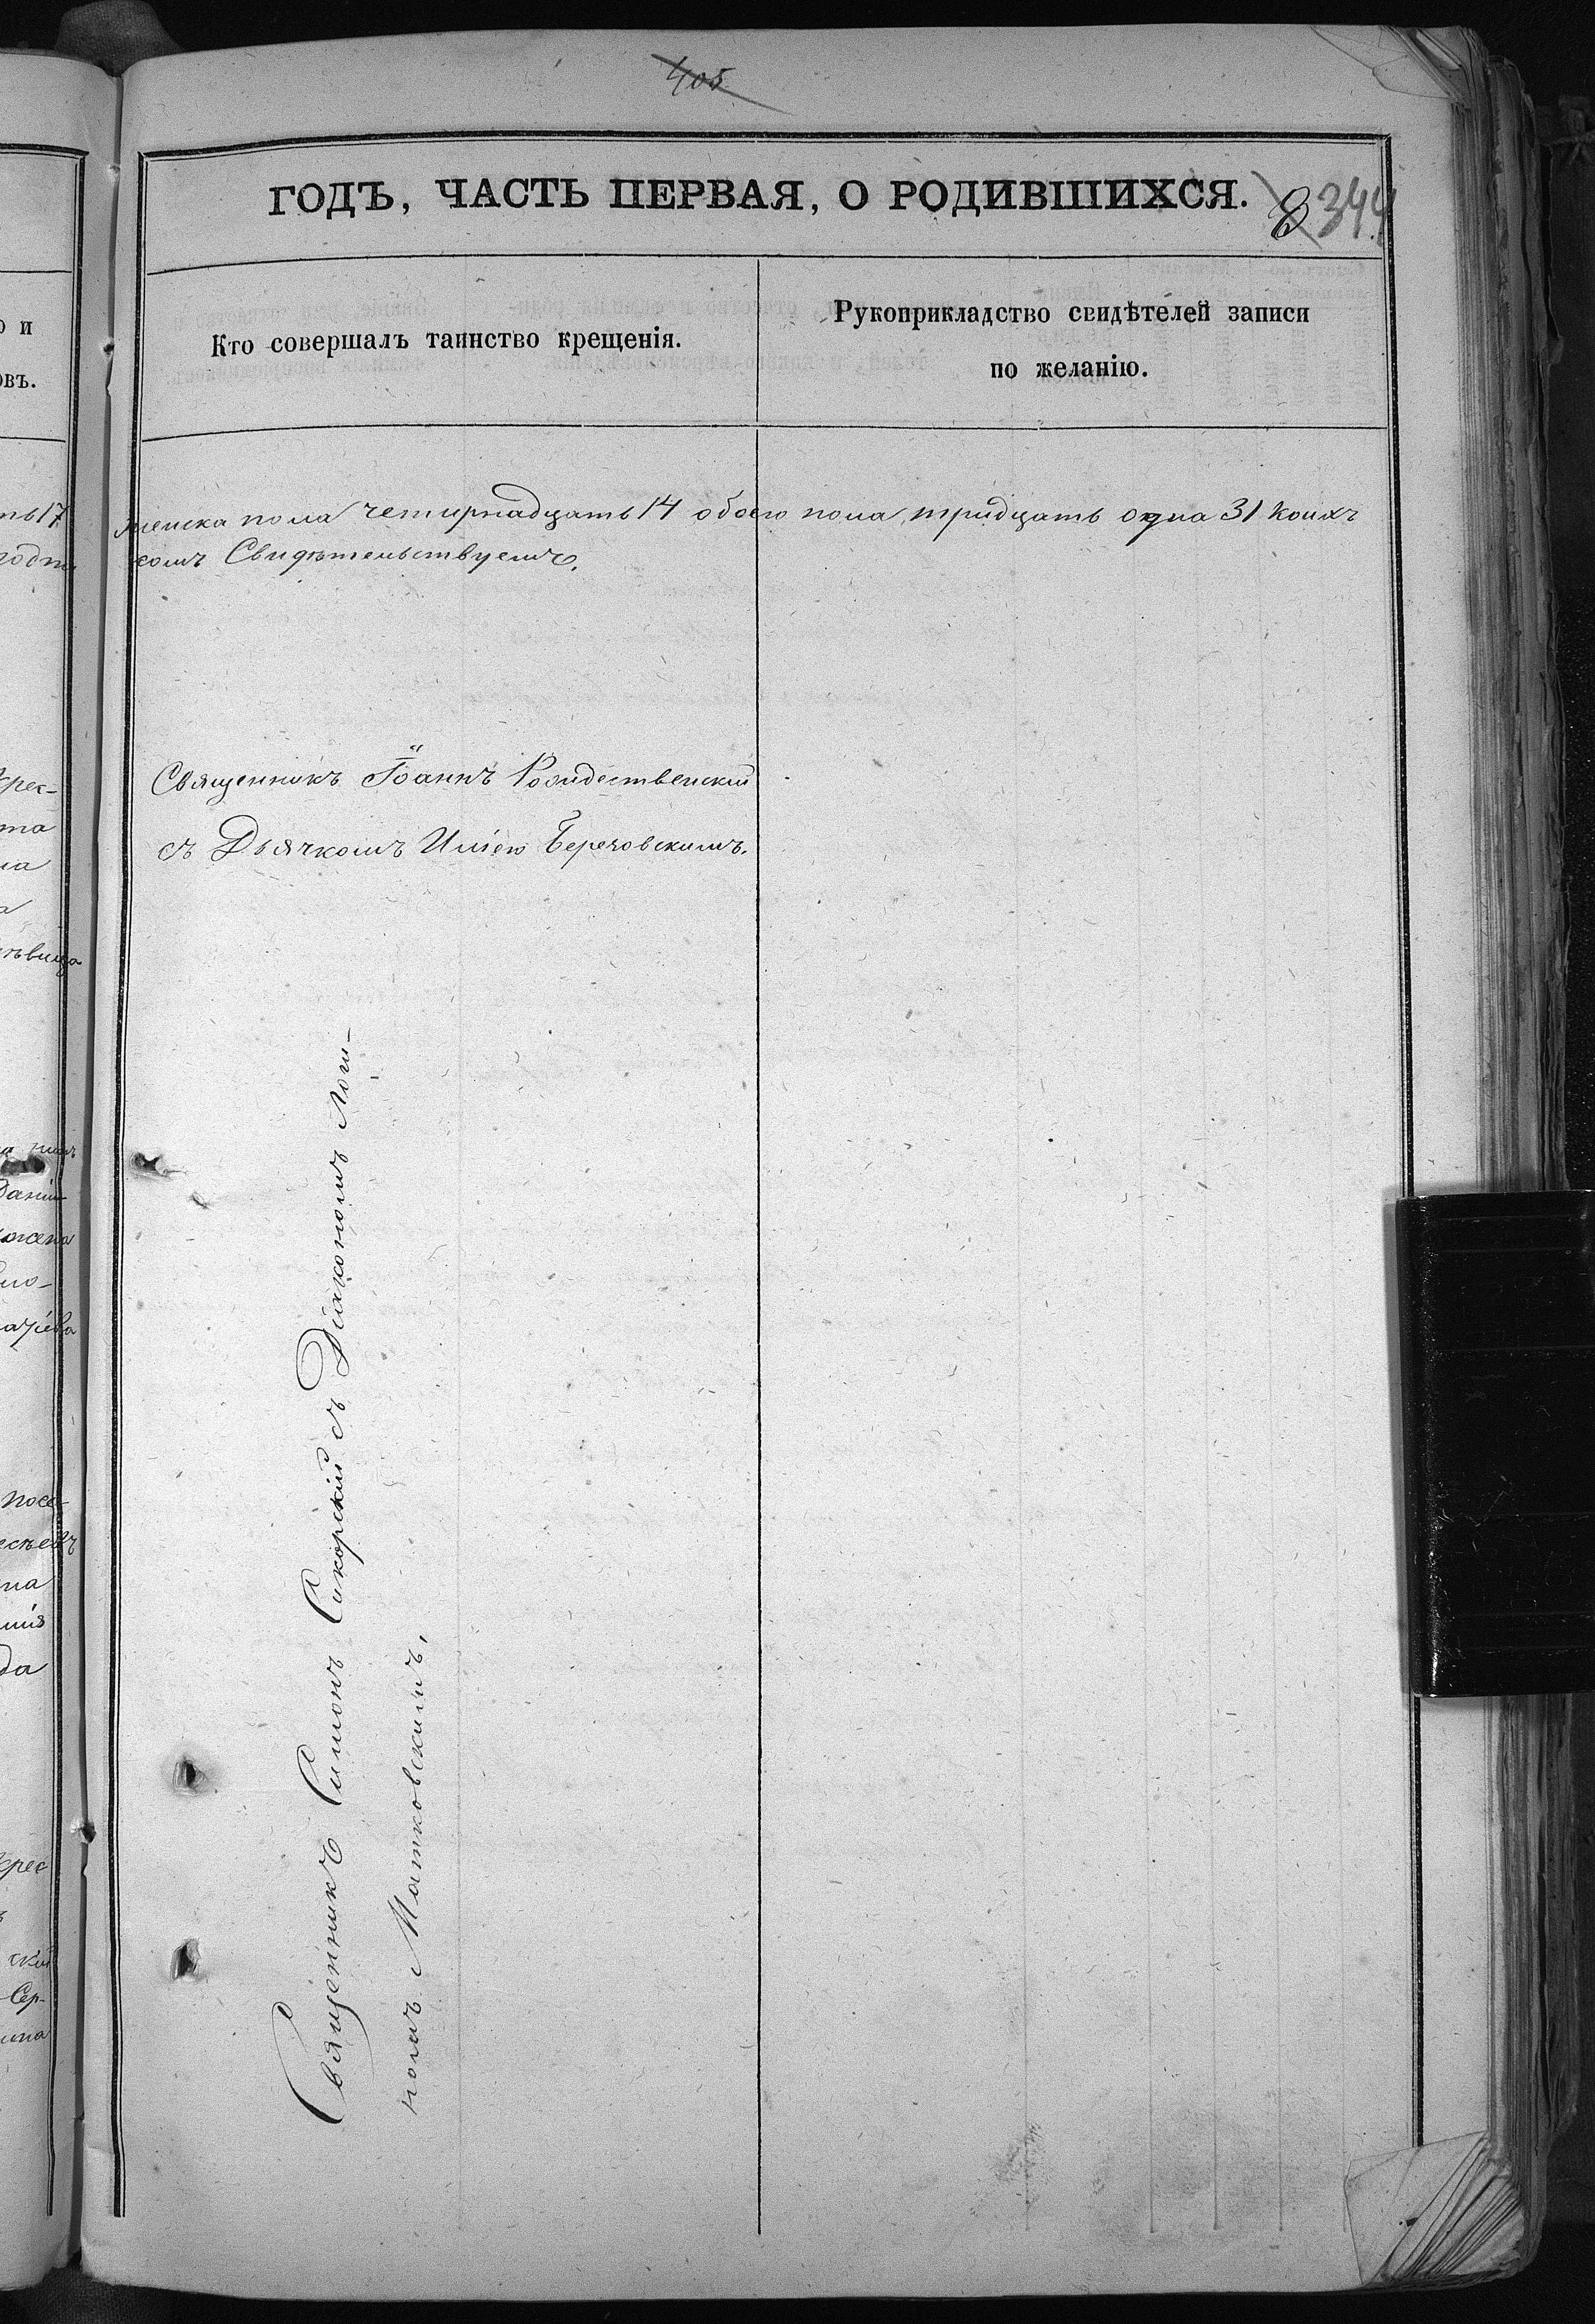 405
ГОДЪ, ЧАСТЬ ПЕРВАЯ, О РОДИВШИХСЯ.
8 344
Кто совершалъ таинство крещенія.
Рукоприкладство свидѣтелей записи
по желанію.
о и
овъ.
ть 17
женска пола четирнадцать 14 обоего пола тридцать одна 31 коихъ
комъ Свидѣтельствуемъ.
Священникъ Іоаннъ Рождественскій
съ Дьячкомъ Иліею Березовскимъ.
Священникъ Симонъ Сикорскій съ Діакономъ Логи-
номъ Матковскимъ.
крес-
та
на
а
жена
посе-
на
да
крес
скій
Сер-